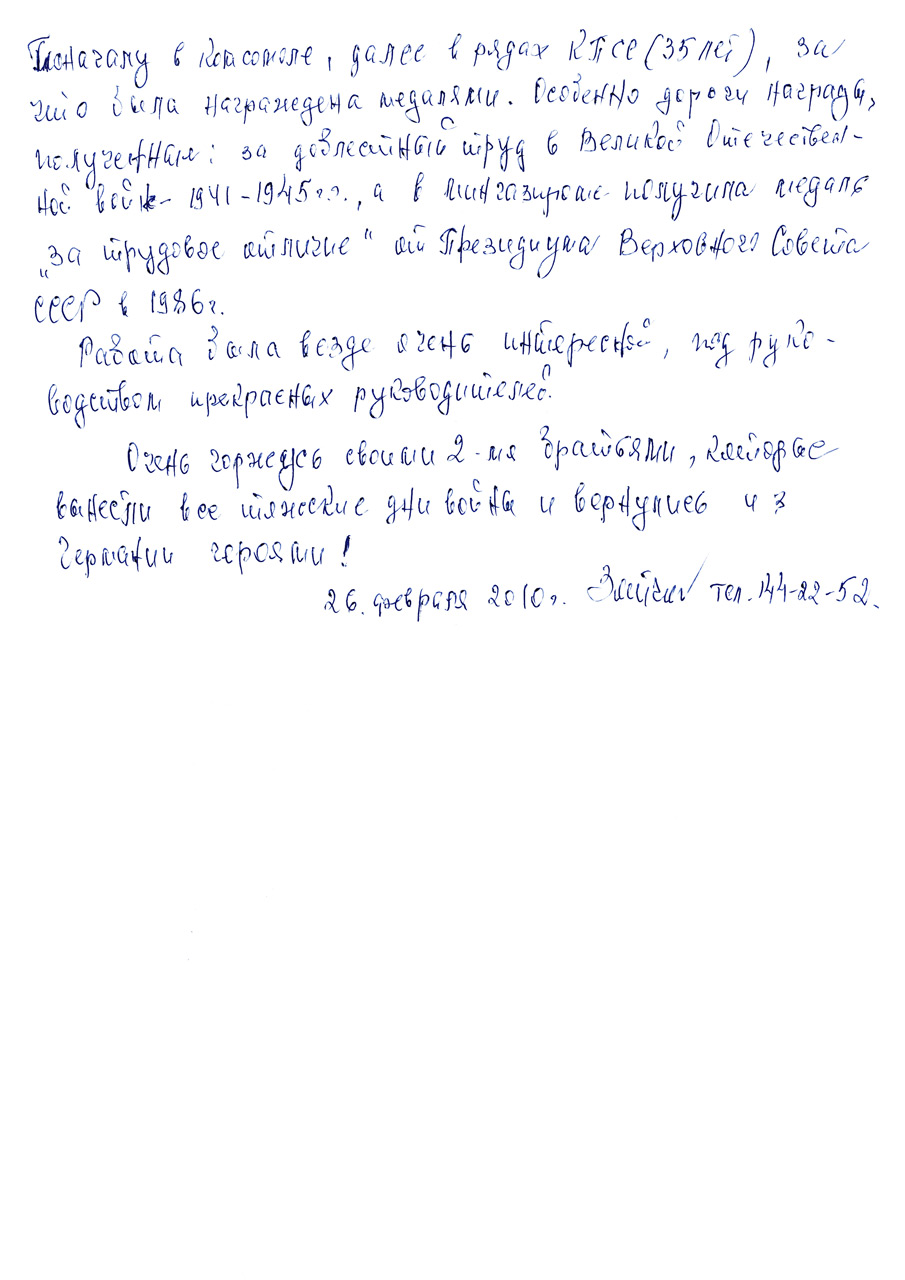 Поначалу в комсомоле, далее в рядах КПСС (35 лет), за
что была награждена медалями. Особенно дороги награды,
полученные: за доблестный труд в Великой Отечествен-
ной войне 1941-1945 г.г., а в мингазпроме получила медаль
„за трудовое отличие“ от Президиума Верховного Совета
СССР в 1986 г.
Работа была везде очень интересной, под руко-
водством прекрасных руководителей.
Очень горжусь своими 2-мя братьями, которые
вынесли все тяжёлые дни войны и вернулись из
Германии героями!
26. февраля 2010 г. тел. 144-22-52.